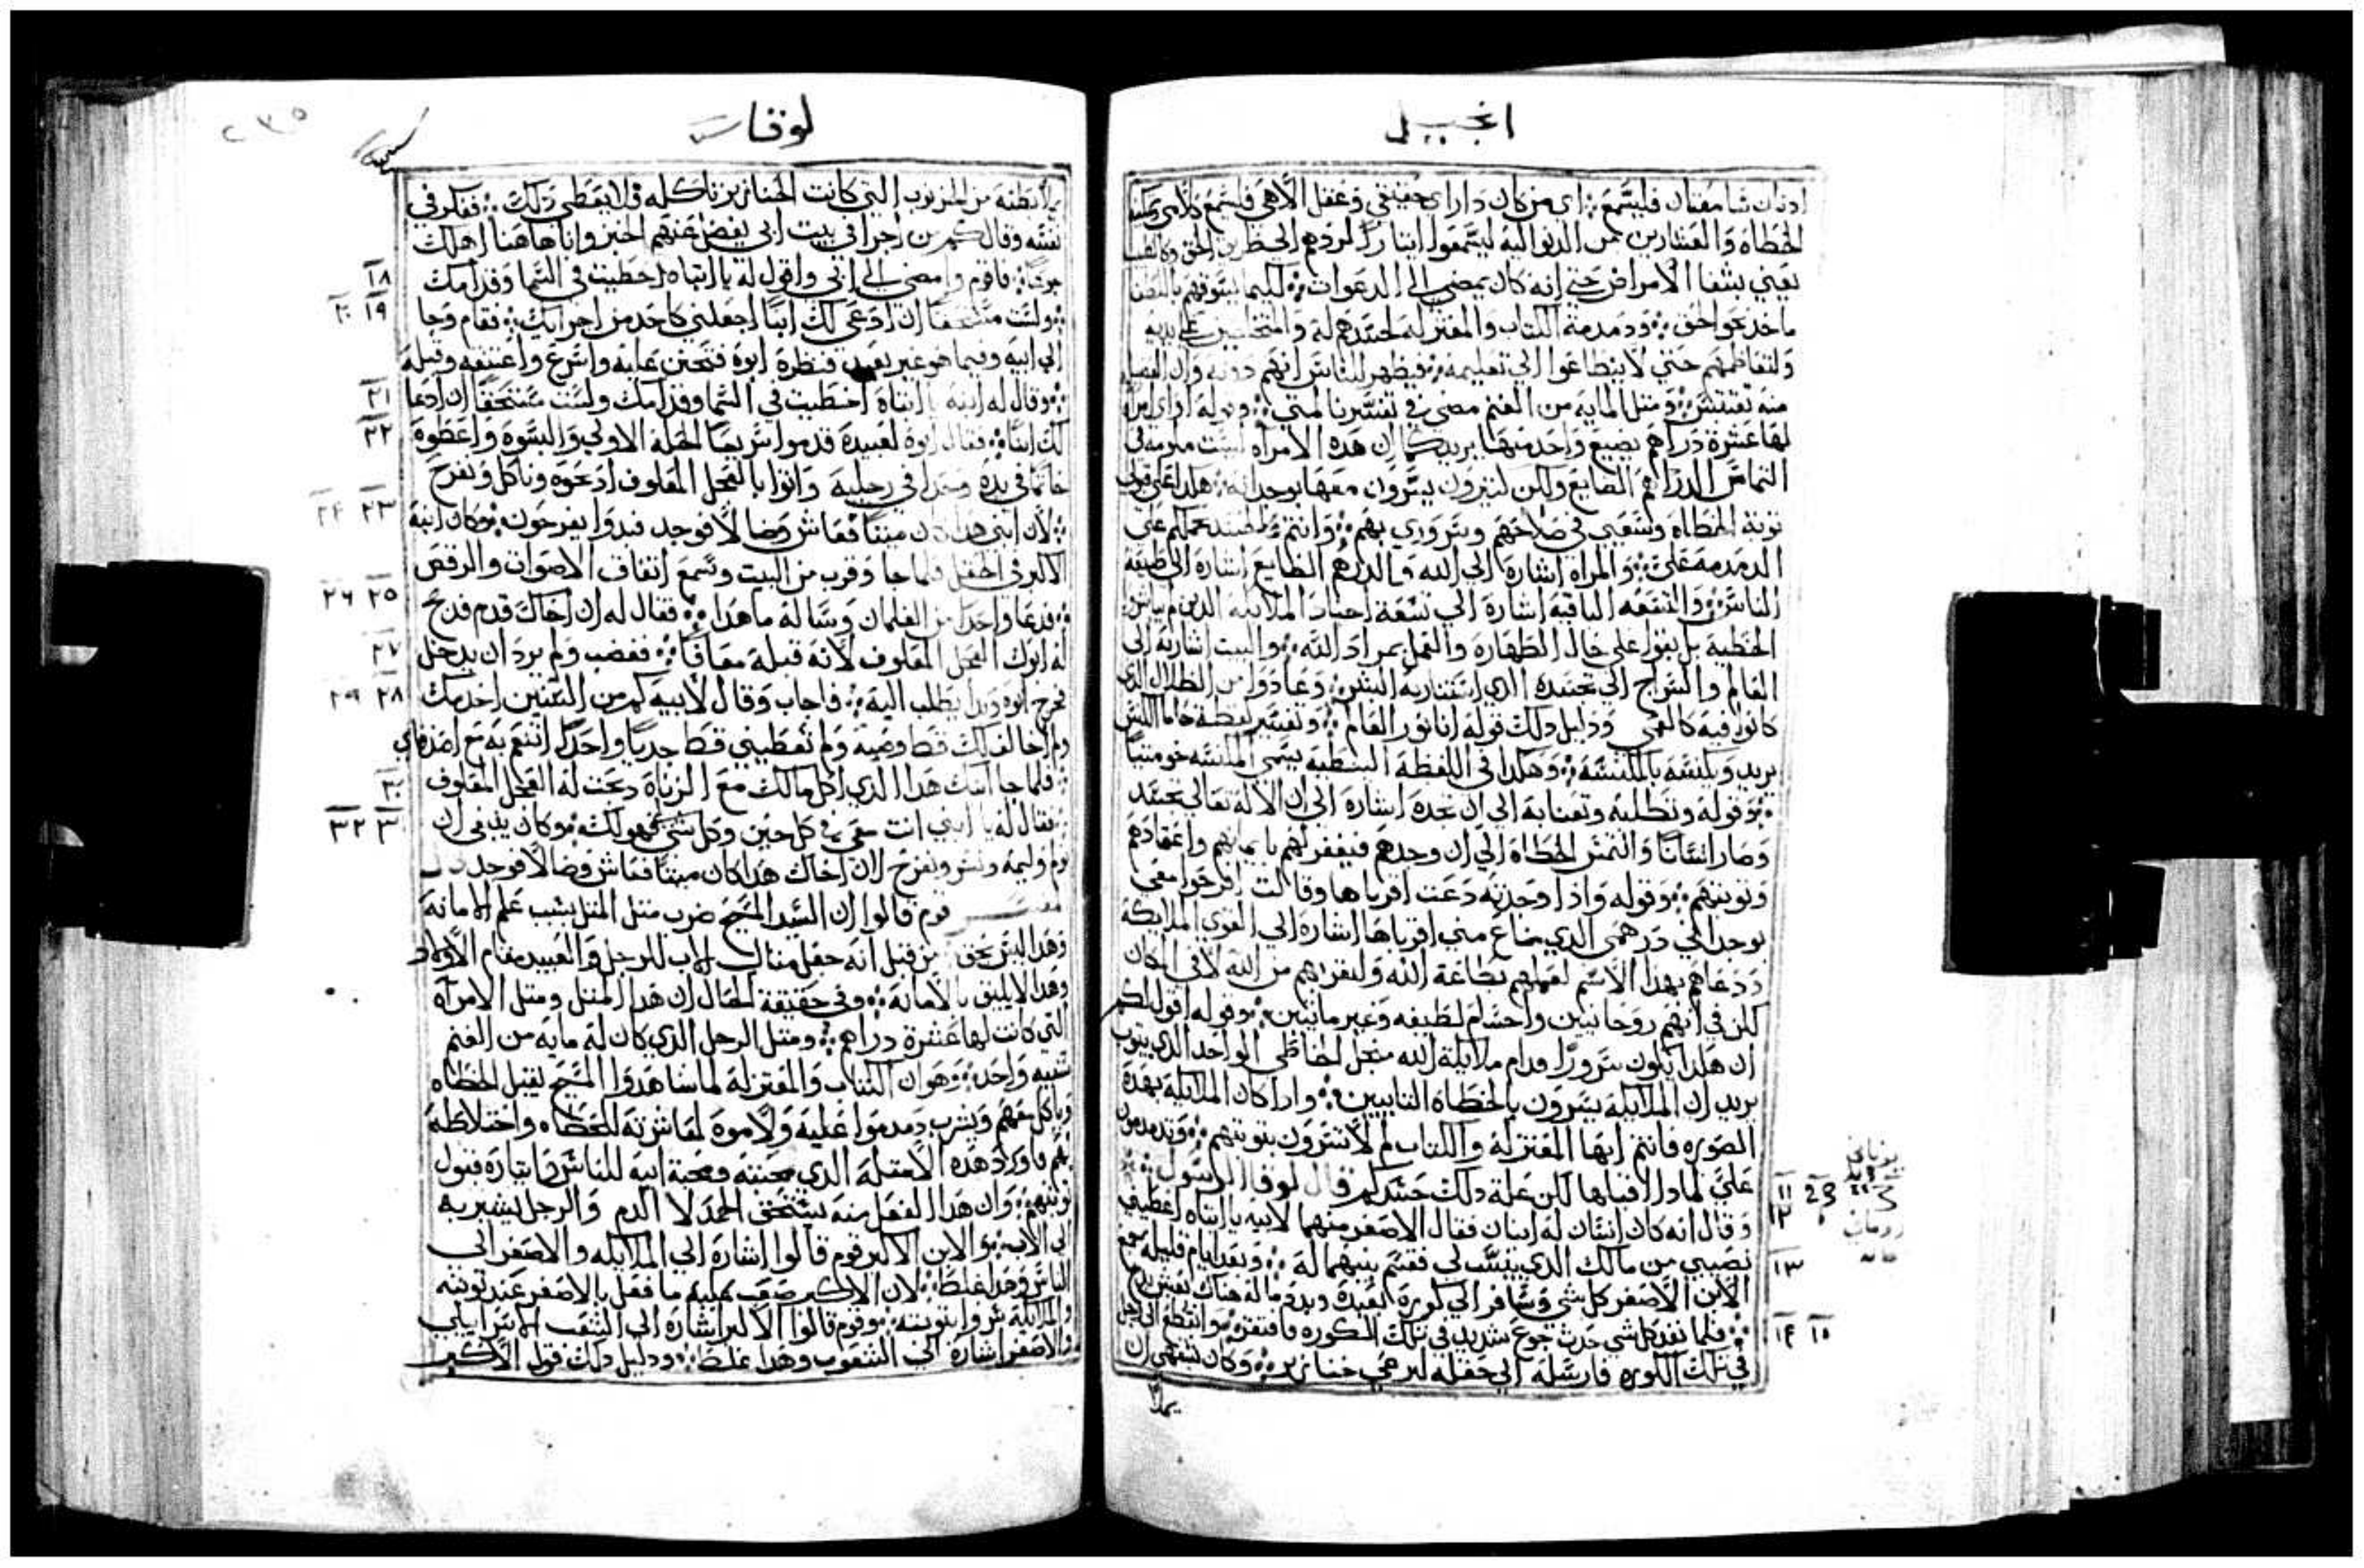 انجيل
ادنان سامعتان فليسمع : اي من كان دا راي حقيقي وعقل الاهي فليسمع كلامي
الخطاه والعشارين
يعني بشفا الامراض حتي انه كان يمضي الي الدعوات
ما خد عوا حق ودمدمة الكتاب والمعتزله لحسدهم له
حتي لا ينطاعوا الي تعليمه فيظهر للناس انهم دونه وان
ومتل المايه من الغنم مضي في تفسيرنا لمتي وقوله او اي امراه
لها عشرة دراهم يضيع واحد منها يريد كما ان هده الامراه ليست ملومه في
التماس الدراهم الضايع ولكن كتيرون يسرون معها بوجدانه هكدا
توبة الخطاه وسعيي في صلاحهم وسروري بهم وانتم
الدمدمه علي والمراه اشاره الي الله والدرهم الضايع اشاره الي طبيعة
الناس والتسعه الباقيه اشارة الي تسعة اجناد الملايكه الدين
الخطيه بل بقوا علي حال الطهاره والعمل بمراد الله والبيت اشاره الي
العالم والسراج الي تجسده الدي استنار به البشر وعادوا من الظلال الدي
كانوا فيه كالعمي ودليل دلك قوله انا نور العالم وتفسير لفظة
يريد ويكنسه بالمكنسه وهكدا في اللفظة
وقوله وتطلبه وتعنا به الي ان تجده اشارة الي ان الاله تعالي تجسد
وصار انسانا والتمس الخطاه الي ان وجدهم فيغفر لهم بايمانهم واعتقادهم
وتوبتهم وقوله وادا وجدته دعت اقرباها وقالت افرحوا معي
بوجداني درهمي الدي ضاع مني اقرباها اشارة الي القوي الملايكة
ودعاهم بهدا الاسم لعملهم بطاعة الله ولقربهم من الله لا في المكان
لكن في انهم روحانيين واجسام لطيفه وغير مايتين وقوله اقول لكم
ان هكدا يكون سرورا قدام ملايكة الله من اجل الخاطي الواحد الدي يتوب
يريد ان الملايكة يسرون بالخطاه التايبين وادا كان الملايكة بهده
الصوره فانتم ايها المعتزله والكتاب لم لا تسرون بتوبتهم وتدمدمون
علي لمادا اقبلها لكن علة دلك حسدكم قال لوقا الرسول
وقال انه كان انسان له ابنان فقال الاصغر منهما لابيه يا ابتاه اعطيني
نصيبي من مالك الدي ينسب لي فقسم بينهما له وبعد ايام قليله جمع
الابن الاصغر كل شي وسافر الي كوره بعيده وبدد ماله هناك
فلما نفد كل شي حدث جوع شديد في تلك الكوره فافتقر وانقطع الي رجل
في تلك الكوره فارسله الي حقله ليرعي خنازير وكان يشتهي ان
يملا
١١ ١٢
١٣
١٤ ١٥
لوقا
٢٣٥
يملا بطنه من الخرنوب التي كانت الخنازير تاكله فلا يعطي دلك ففكر في
نفسه وقال كم من اجرا في بيت ابي يفضل عنهم الخبز وانا هاهنا اهلك
جوعا فاقوم وامضي الي ابي واقول له يا ابتاه اخطيت في السما وقدامك
ولست مستحقا ان ادعي لك ابنا اجعلني كاحد من اجرايك فقام وجا
الي ابيه وفيما هو غير بعيد فنظره ابوه فتحنن عليه واسرع واعتنقه وقبله
وقال له ابنه يا ابتاه اخطيت في السما وقدامك ولست مستحقا ان ادعا
لك ابنا فقال ابوه لعبيده قدموا سريعا الحلة الاولي والبسوه واعطوه
خاتما في يده وحدا في رجليه واتوا بالعجل المعلوف ادبحوه وناكل ونفرح
لان ابني هدا كان ميتا فعاش وضالا فوجد فبدوا يفرحون وكان ابنه
الاكبر في الحقل فلما جا وقرب من البيت وسمع اتفاق الاصوات والرقص
فدعا واحدا من الغلمان وساله ما هدا فقال له ان اخاك قدم فدبح
له ابوك العجل المعلوف لانه قبله معافا فغضب ولم يرد ان يدخل
فخرج ابوه وبدا يطلب اليه فاجاب وقال لابيه كم من السنين اخدمك
ولم اخالف لك قط وصية ولم تعطيني قط جديا واحدا اتنعم به مع اصدقاي
فلما جا ابنك هدا الدي اكل مالك مع الزناة دبحت له العجل المعلوف
فقال له يا ابني انت معي في كل حين وكل شي لي فهو لك وكان ينبغي ان
ولسر ونفرح لان اخاك هدا كان ميتا فعاش وضالا فوجد
قوم قالوا ان السيد المسيح ضرب متل المتل بسبب علم الامانة
وهدا ليس بحق من قبل انه جعل متال الاب للرجل والعبيد مقام الاولاد
وهدا لا يليق بالامانة وفي حقيقة الحال ان هدا المتل ومتل الامراه
التي كانت لها عشرة دراهم ومتل الرجل الدي كان له مايه من الغنم
شبيه واحد وهو ان الكتاب والمعتزله لما شاهدوا المسيح يقبل الخطاه
وياكل معهم ويشرب دمدموا عليه ولاموه لمعاشرته للخطاه واختلاطه
بهم فاورد هده الامتله الدي محبته ومحبة ابيه للناس وايتاره قبول
توبتهم وان هدا الفعل منه يستحق الحمد لا الدم والرجل يشير به
الي الاب والابن الاكبر قوم قالوا اشارة الي الملايكه والاصغر الي
الناس وهدا غلط لان الاكبر صعب عليه ما فعل بالاصغر عند توبته
والملايكة سروا بتوبته وقوم قالوا الاكبر اشاره الي الشعب الاسراييلي
والاصغر اشارة الي الشعوب وهدا غلط ودليل دلك قول الاكبر
١٨
١٩ ٢٠
٢١
٢٢
٢٣ ٢٤
٢٥ ٢٦
٢٧
٢٨ ٢٩
٣٠
٣١ ٣٢